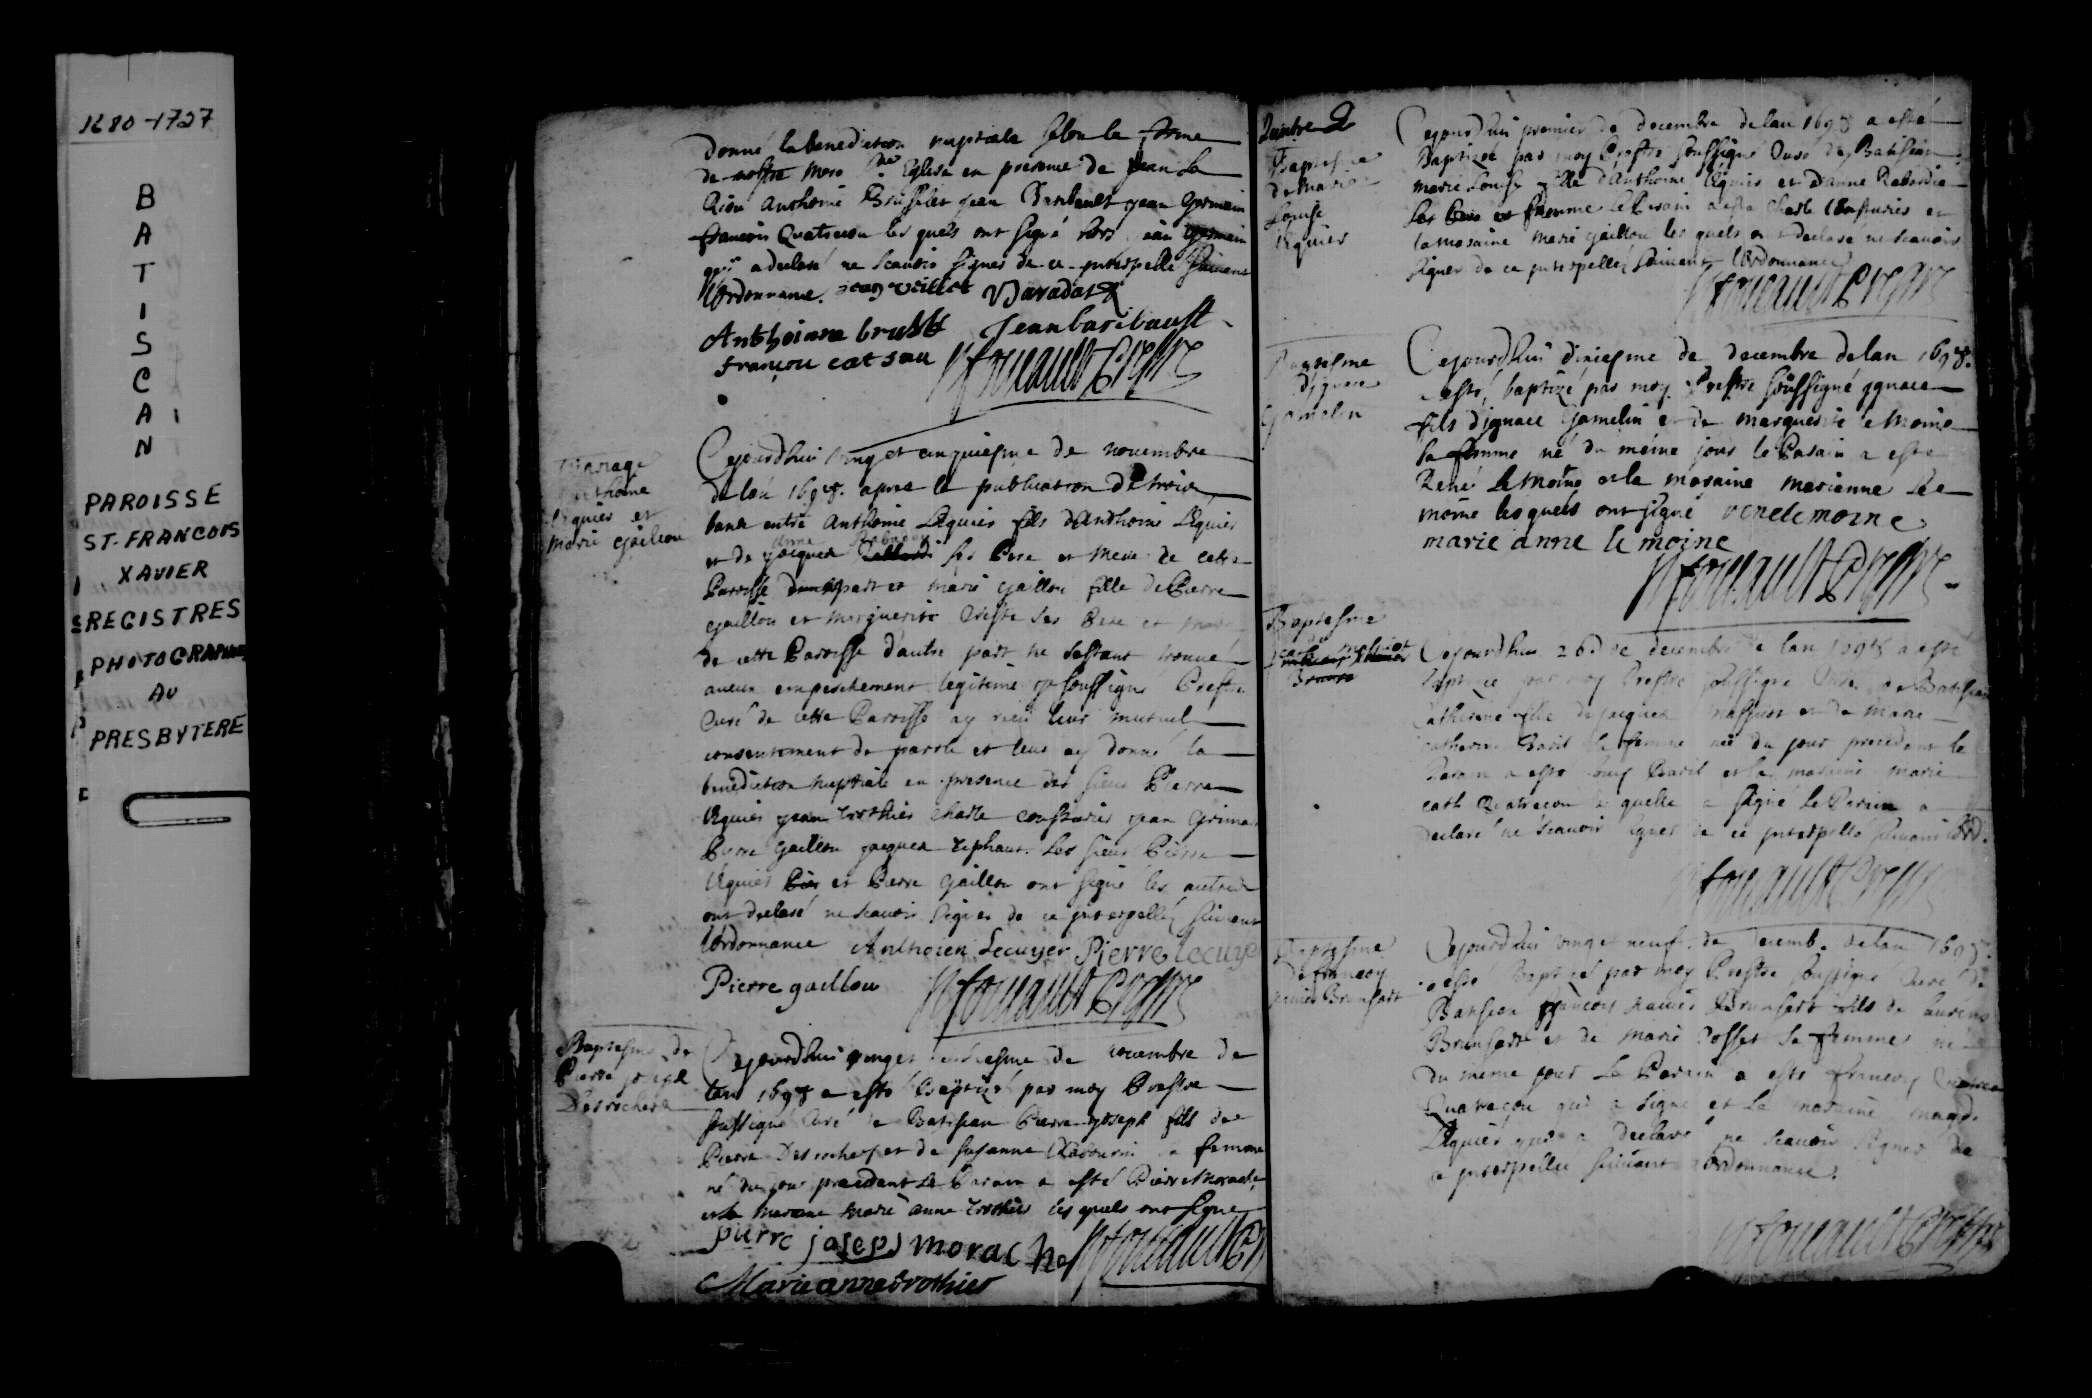 1680-1727
BATISCAN
PAROISSE
ST-FRANCOIS
XAVIER
REGISTRES
PHOTOGRAPHIES
AU
PRESBYTERE
donné la benediction nuptiale selon la forme
de nostre mere Ste Eglise en presence de Jean
Anthoine Jean Jean Germain
francois Quatresou les quels ont signé hors Germain
qui a declaré ne scauoir signer de ce interpellé suiuant
lordonnance. Jean veillet
Anthoinne Jean baribault
françou catsau foucault prestre
Mariage
Anthoine
lequier et
Marie Gaillou
Cejourdhui vingt cinquiesme de nouembre
de lan 1698. apres la publication de trois
bans entre Anthoine Lequier fils danthoine lequier
Anne Rabady
et de jacques ses Pere et Mere de cette
Paroisse dune part et marie gaillou fille de Pierre
gaillou et marguerite ses Pere et mere
de cette Paroisse d'autre part ne sestant trouué
aucun empeschement legitime je soussigné Prestre
Curé de cette Paroisse ay receu leur mutuel
consentement de parole et leur ay donné la
benediction nuptiale en presence des sieurs Pierre
lequier jean trottier charle jean
Pierre gaillou jacques Les sieurs Pierre
lequier et Pierre gaillou ont signé les autres
ont declaré ne scauoir signer de ce interpellés suiuant
lordonnance Anthoien Lecuyer Pierre lecuye
Pierre gaillou foucault prestre
Baptesme de
Pierre joseph
Desrochers
Cejourdhui vingt de nouembre de
lan 1698 a esté Baptizé par moy Prestre
soussigné Curé de Batiscan Pierre joseph fils de
Pierre Desrochers et de susanne sa femme
né du jour precedent Le Parain a esté Pierre Morache
et la Maraine Marie anne trottier les quels ont signe
pierre joseps morache foucault
Marieannetrothier
Baptesme
de Marie
Louise
lequier
Cejourdhui premier de decembre de lan 1698 a esté
Baptizée par moy Prestre soussigné Curé de Batiscan
marie Louise fille d'Anthoine lequier et d'anne Rabadie
sa femme le Parain a esté Charle et
la maraine Marie gaillou les quels ont declaré ne scauoir
signer de ce interpellés suiuant lordonnance
foucault prestre
Baptesme
d'ignace
Gamelin
Cejourdhui dixiesme de decembre de lan 1698.
a esté baptizé par moy Prestre soussigné ygnace
fils d'ignace Gamelin et de marguerite le Moine
sa femme né du méme jour le Parain a esté
René le Moine et la maraine marianne le
moine lesquels ont signé rene le moine
marie anne le moine
foucault prestre
Baptesme
Cejourdhui 26 de decembre de lan 1698 a esté
baptizée par moy Prestre soussigné Curé de Batiscan
Catherine fille de jacques et de Marie
catherine Baril sa femme née du jour precedent le
Parain a esté louis Baril et la maraine marie
cath Quatresou la quelle a signé Le Parain a
declaré ne scauoir signer de ce interpellé suiuant lord.
foucault prestre
Baptesme
de francois
xauier Brunsart
Cejourdhui vingt neuf de decemb. de lan 1698.
a esté Baptizé par moy Prestre soussigné Curé de
Batiscan françois xauier Brunsart fils de laurens
Brunsart et de Marie sa femme né
du meme jour Le Parain a esté francois
Quatresou qui a signé et la maraine magd.
lequier qui a declaré ne scauoir signer de
ce interpellée suiuant lordonnance.
foucault prestre